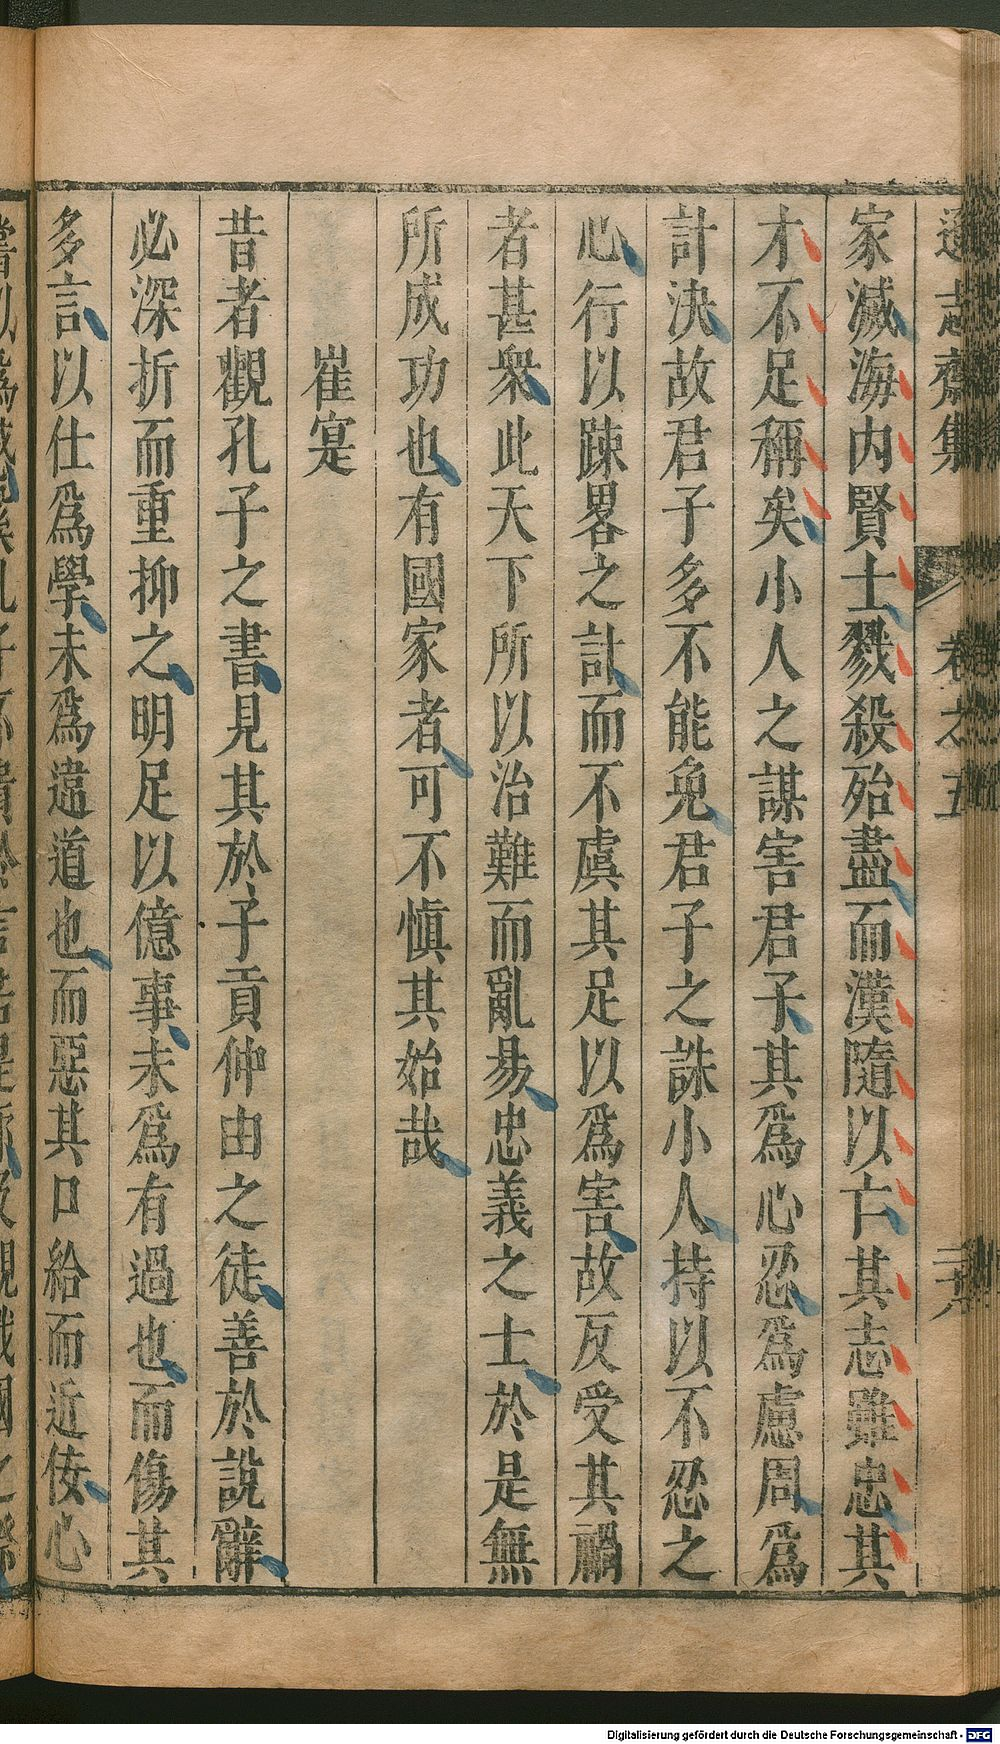 遜志齋集 卷之五
家滅海内賢士戮殺殆盡而漢隨以亡其志雖忠其
才不足稱矣小人之謀害君子其爲心忍爲慮周爲
計決故君子多不能免君子之誅小人持以不忍之
心行以踈畧之計而不虞其足以爲害故反受其禍
者甚衆此天下所以治難而亂易忠義之士於是無
所成功也有國家者可不愼其始哉
崔寔
昔者觀孔子之書見其於子貢仲由之徒善於說辭
必深折而重抑之明足以億事未爲有過也而傷其
多言以仕爲學未爲違道也而惡其口給而近佞心
Digitalisierung gefördert durch die Deutsche Forschungsgemeinschaft - DFG